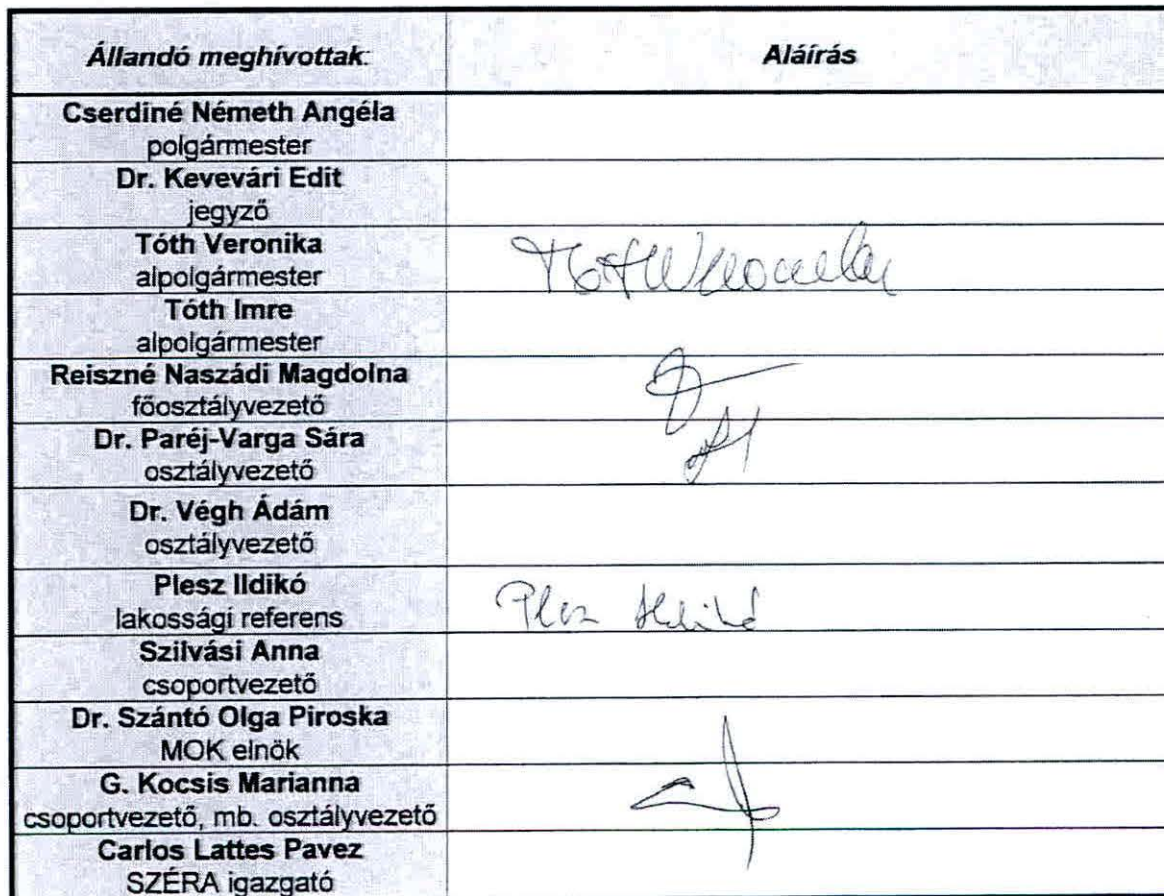 Állandó meghívottak: Aláírás
Cserdiné Németh Angéla
polgármester
Dr. Kevevári Edit
jegyző
Tóth Veronika
alpolgármester
Tóth Veronika
Tóth Imre
alpolgármester
Reiszné Naszádi Magdolna
főosztályvezető
Dr. Paréj-Varga Sára
osztályvezető
Dr. Végh Ádám
osztályvezető
Plesz Ildikó
lakossági referens
Plesz Ildikó
Szilvási Anna
csoportvezető
Dr. Szántó Olga Piroska
MOK elnök
G. Kocsis Marianna
csoportvezető, mb. osztályvezető
Carlos Lattes Pavez
SZÉRA igazgató